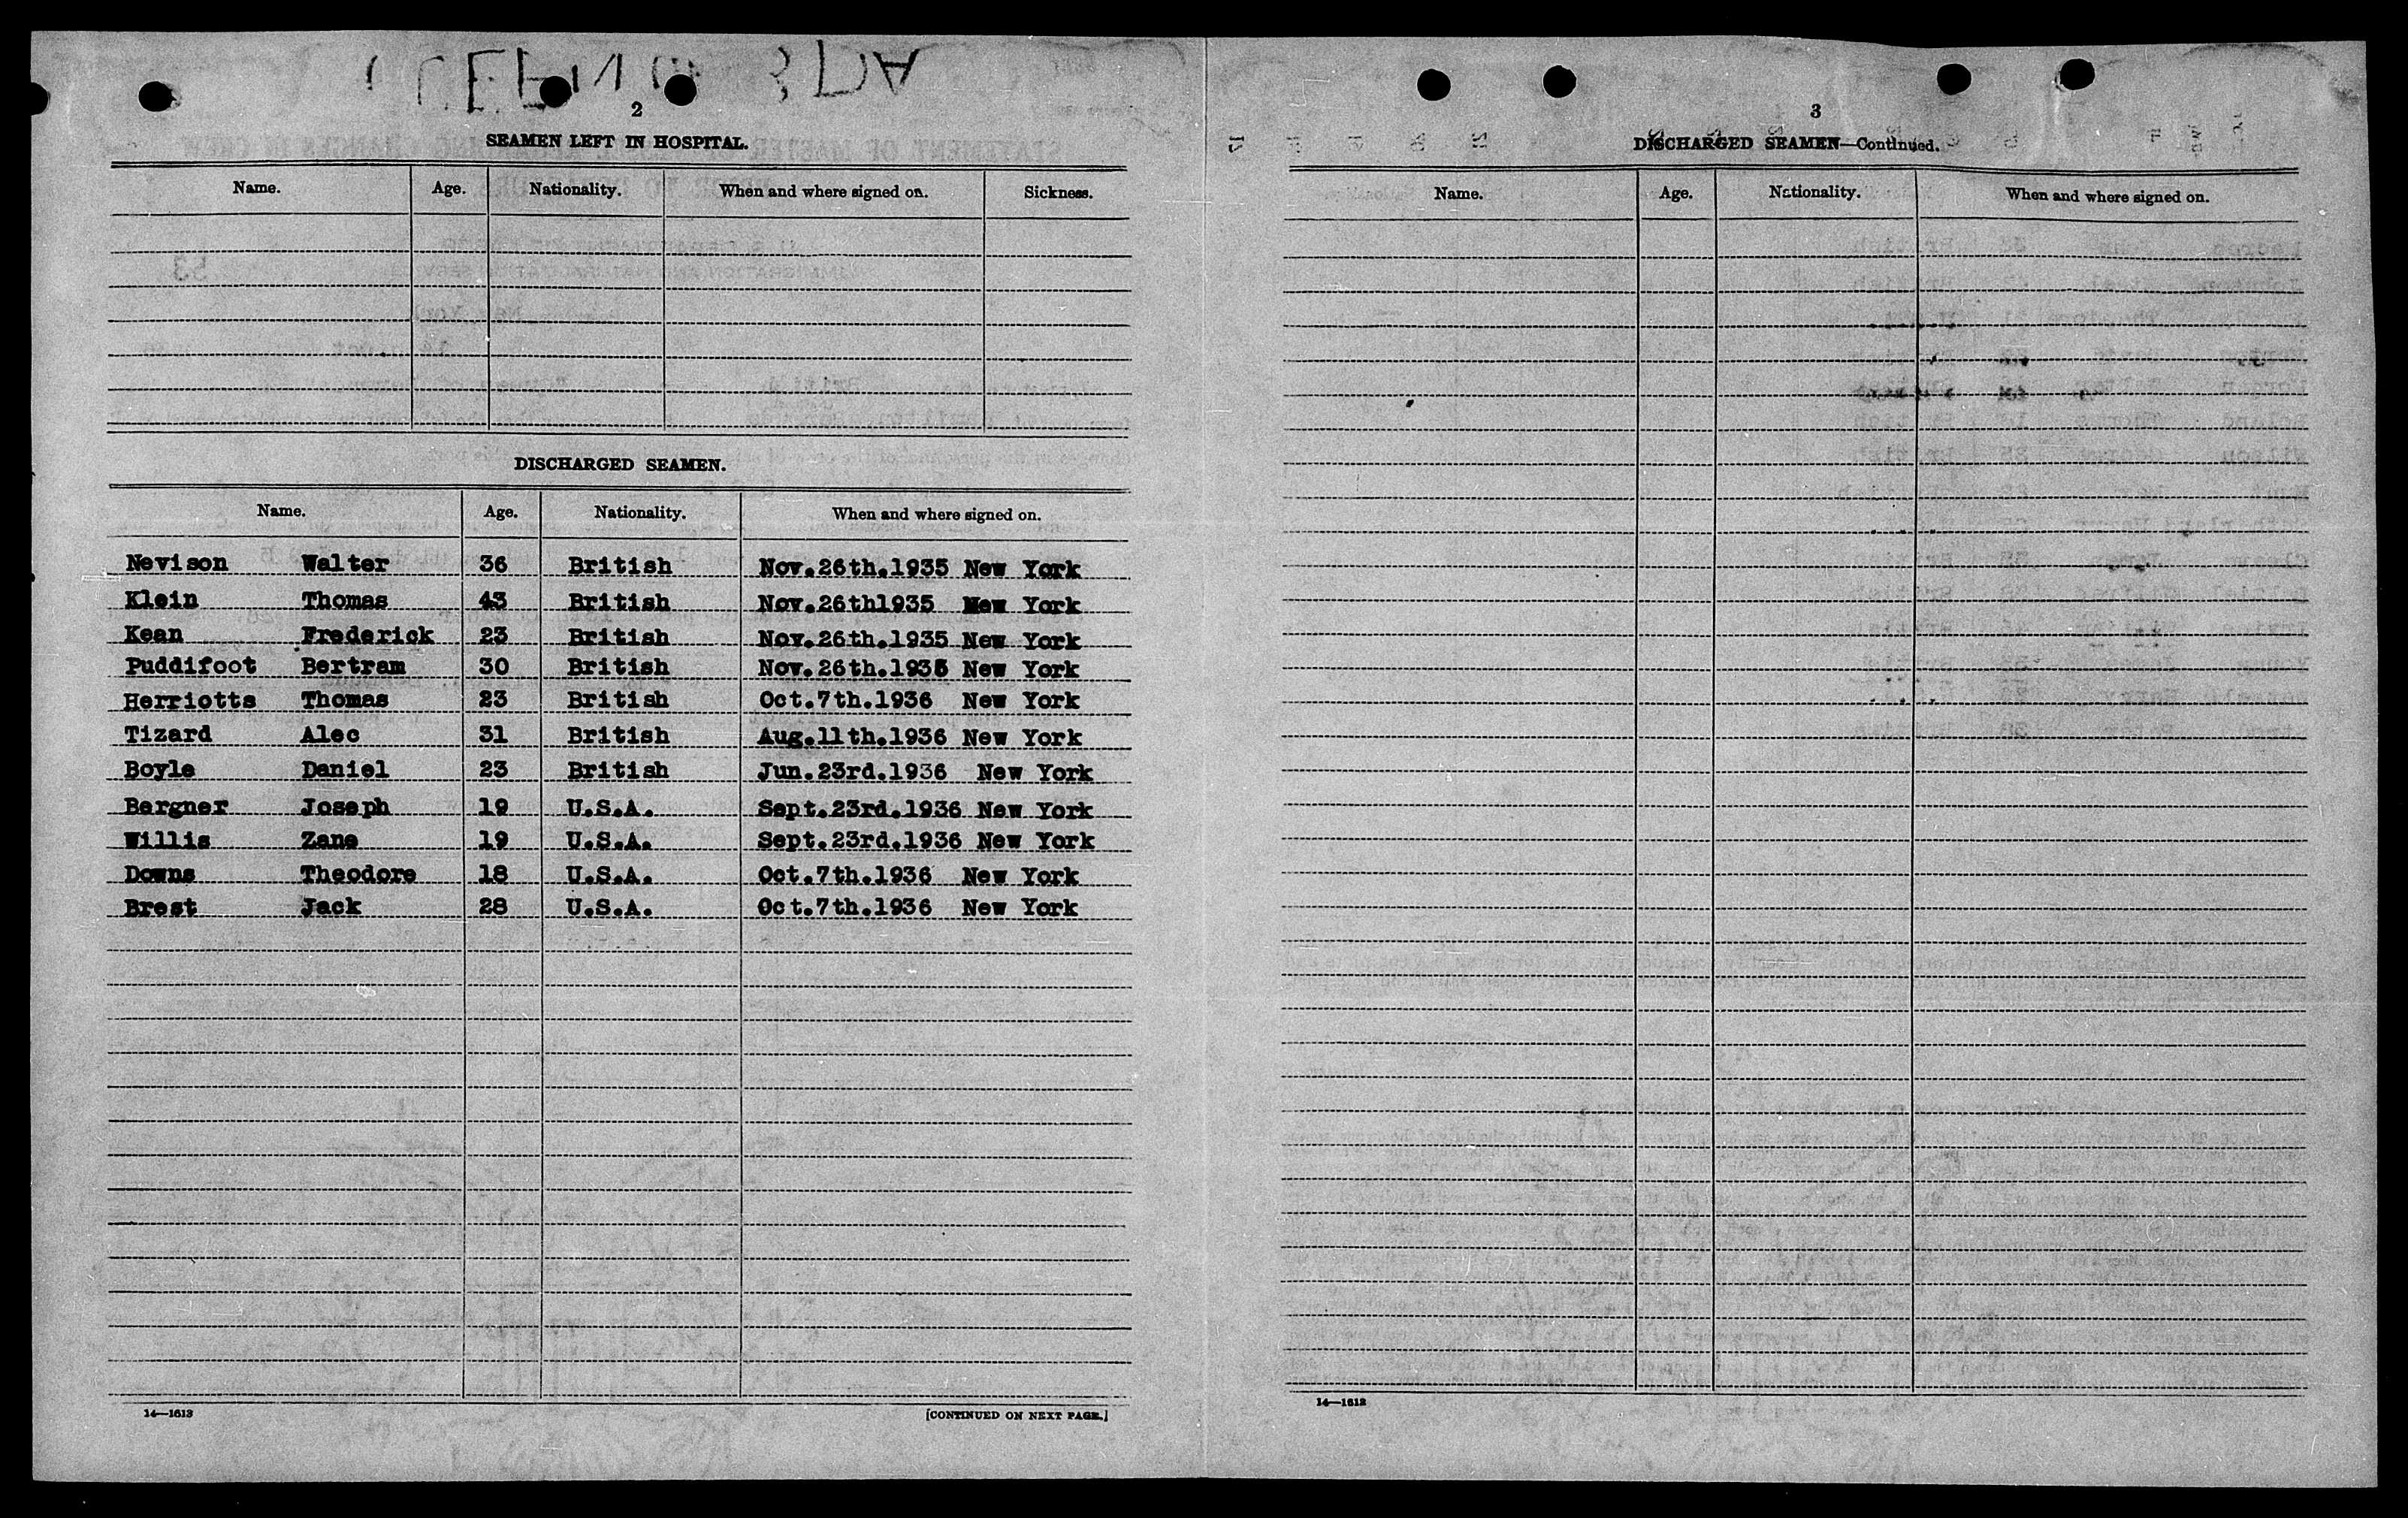 2
SEAMEN LEFT IN HOSPITAL.
Name. Age. Nationality. When and where signed on. Sickness.
DISCHARGED SEAMEN.
Name. Age. Nationality. When and where signed on.
Nevison Walter 36 British Nov.26th.1935 New York
Klein Thomas 43 British Nov.26th1935 New York
Kean Frederick 23 British Nov.26th.1935 New York
Puddifoot Bertram 30 British Nov.26th.1935 New York
Herriotts Thomas 23 British Oct.7th.1936 New York
Tizard Alec 31 British Aug.11th.1936 New York
Boyle Daniel 23 British Jun.23rd.1936 New York
Bergner Joseph 19 U.S.A. Sept.23rd.1936 New York
Willis Zane 19 U.S.A. Sept.23rd.1936 New York
Downs Theodore 18 U.S.A. Oct.7th.1936 New York
Brest Jack 28 U.S.A. Oct.7th.1936 New York
14—1613
[CONTINUED ON NEXT PAGE.]
3
DISCHARGED SEAMEN—Continued.
Name. Age. Nationality. When and where signed on.
14—1613